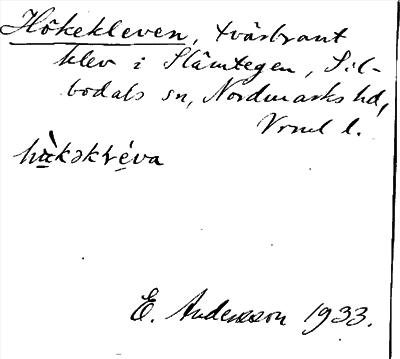 Hökekleven, tvärbrant
klev i Slåmtegen, Sil-
bodals sn, Nordmarks hd,
Vrml l.
hꭒ̀kəkɫéva
E. Andersson 1933.